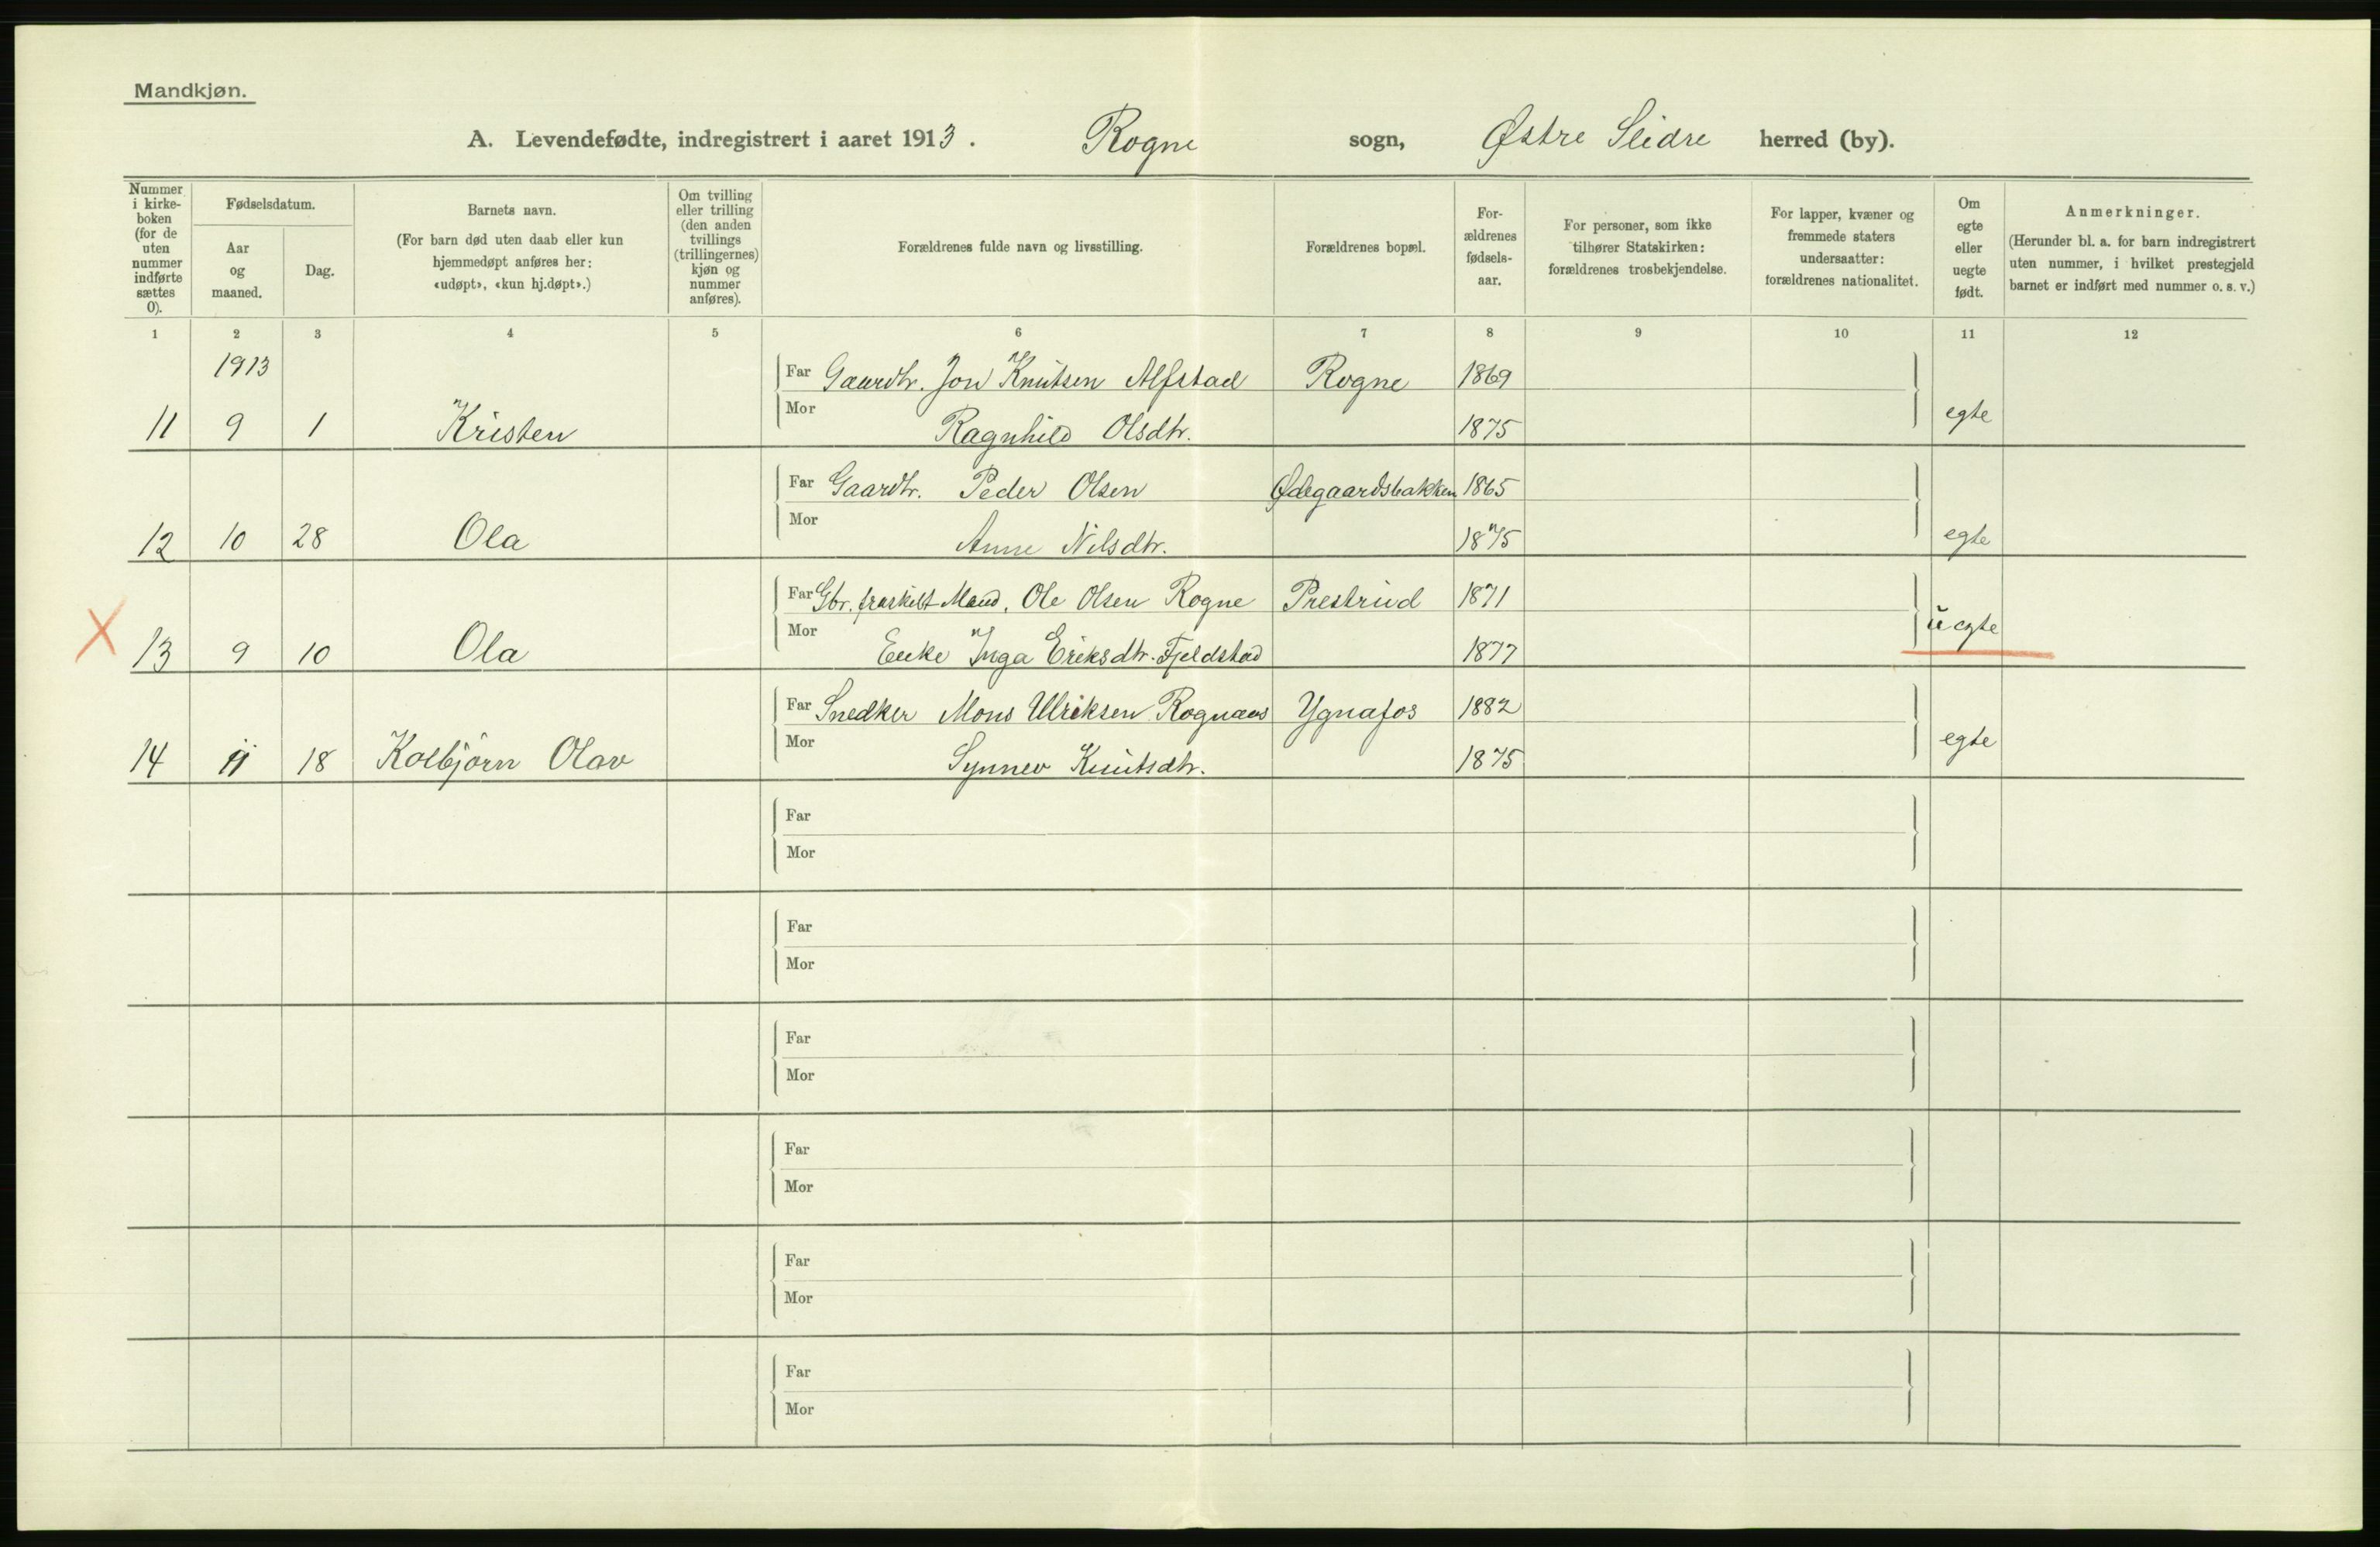 Mandkjøn.
A. Levendefødte, indregistrert i aaret 1913. Rogne sogn, Østre Slidre herred (by).
Nummer i kirke-boken (for de uten nummer indførte sættes 0).
Fødselsdatum.
Aar og maaned.
Dag.
Barnets navn.
(For barn død uten daab eller kun hjemmedøpt anføres her: «udøpt», «kun hj.døpt».)
Om tvilling eller trilling (den anden tvillings (trillingernes) kjøn og nummer anføres).
Forældrenes fulde navn og livsstilling.
Forældrenes bopæl.
For-ældrenes fødsels-aar.
For personer, som ikke tilhører Statskirken: forældrenes trosbekjendelse.
For lapper, kvæner og fremmede staters undersaatter: forældrenes nationalitet.
Om egte eller uegte født.
Anmerkninger.
(Herunder bl. a. for barn indregistrert uten nummer, i hvilket prestegjeld barnet er indført med nummer o. s. v.)
1 2 3 4 5 6 7 8 9 10 11 12
1913
Far Gaardbr. Jon Knutsen Alfstad Rogne 1869
11 9 1 Kristen Mor Ragnhild Olsdtr. 1875 egte
Far Gaardbr. Peder Olsen Ødegaardsbakken 1865
12 10 28 Ola Mor Anne Nilsdtr. 1875 egte
Far Gbr. fraskilt Mand, Ole Olsen Rogne Prestrud 1871
X 13 9 10 Ola Mor Enke Inga Eriksdtr. Fjeldstad 1877 uegte
Far Snedker Mons Ulriksen Rognaas Ygnafos 1882
14 11 18 Kolbjørn Olav Mor Synnev Knutsdtr. 1875 egte
Far
Mor
Far
Mor
Far
Mor
Far
Mor
Far
Mor
Far
Mor